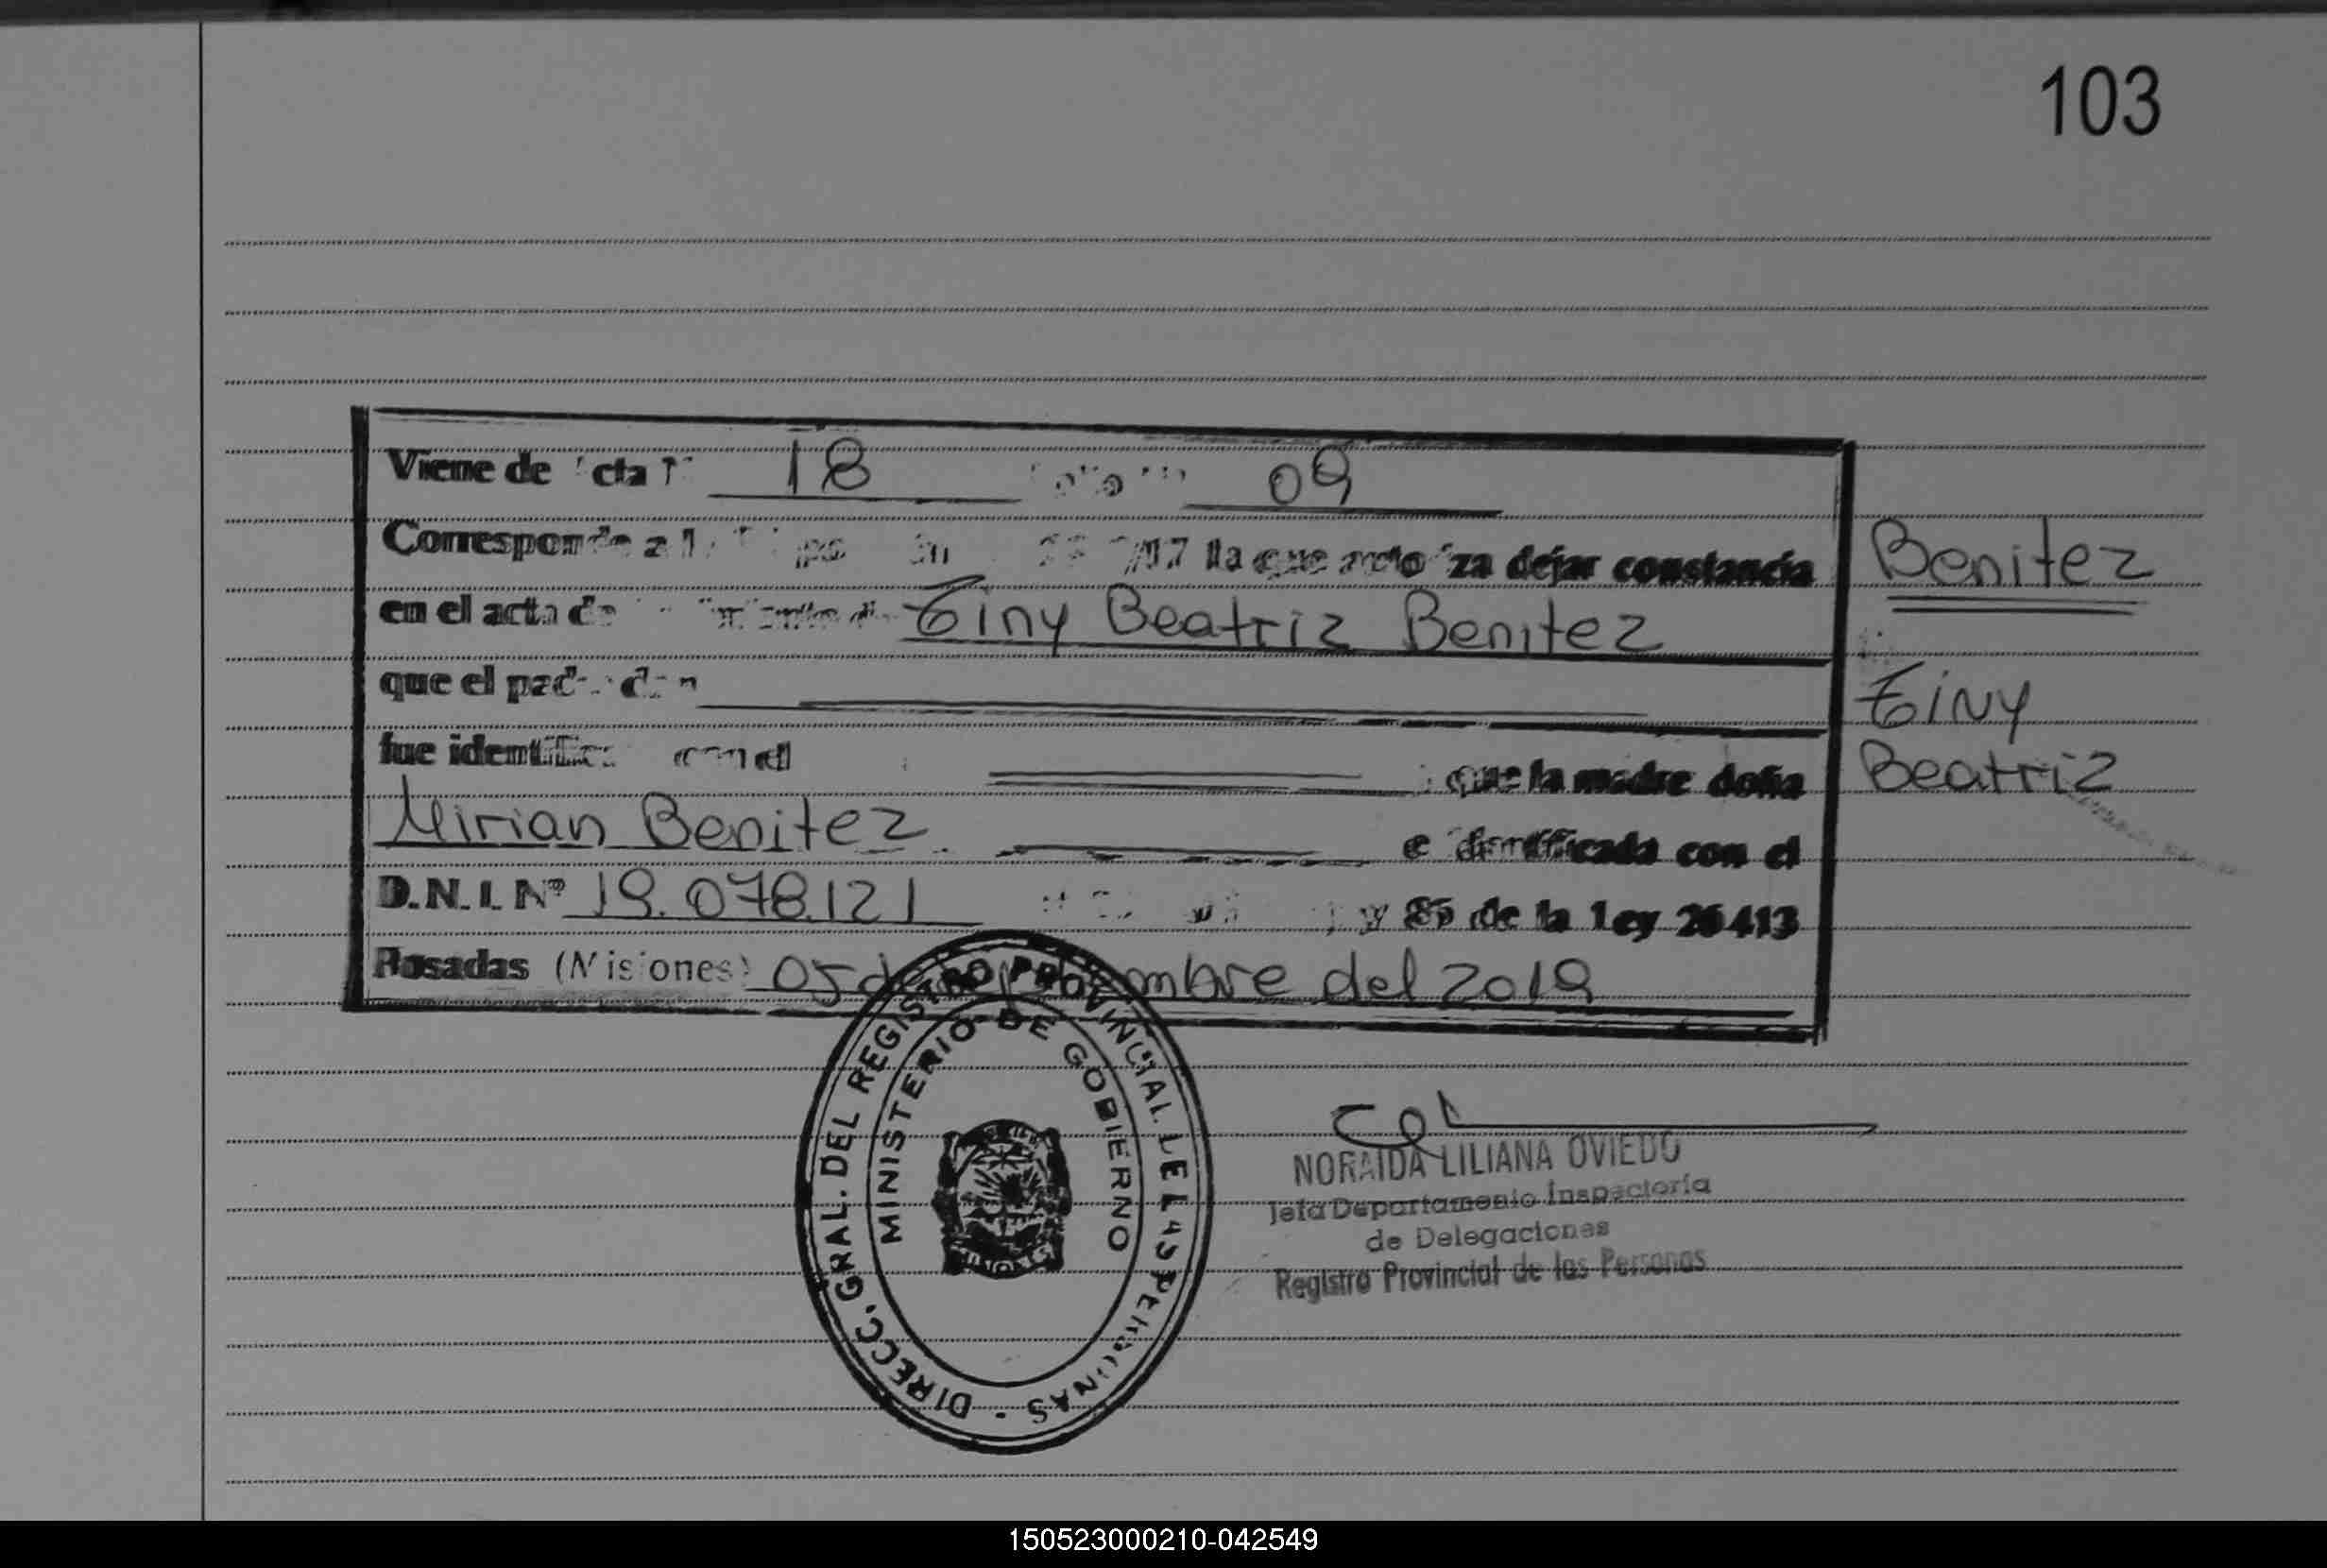 103
Viene de cta 18 09
Corresponde a la que dejar constancia
en el acta de Tiny Beatriz Benitez
Benitez
que el
Tiny
fue con el que la madre doña
Beatriz
Mirian Benitez identificada con el
D.N.I. Nº 19.078.121 y 85 de la Ley 26413
Posadas (Misiones) 05 de embre del 2019
DIRECC. GRAL. DEL REGISTRO PROVINCIAL DE LAS PERSONAS
MINISTERIO DE GOBIERNO
NORAIDA LILIANA OVIEDO
Jefa Departamento Inspectoría
de Delegaciones
Registro Provincial de las Personas
150523000210-042549